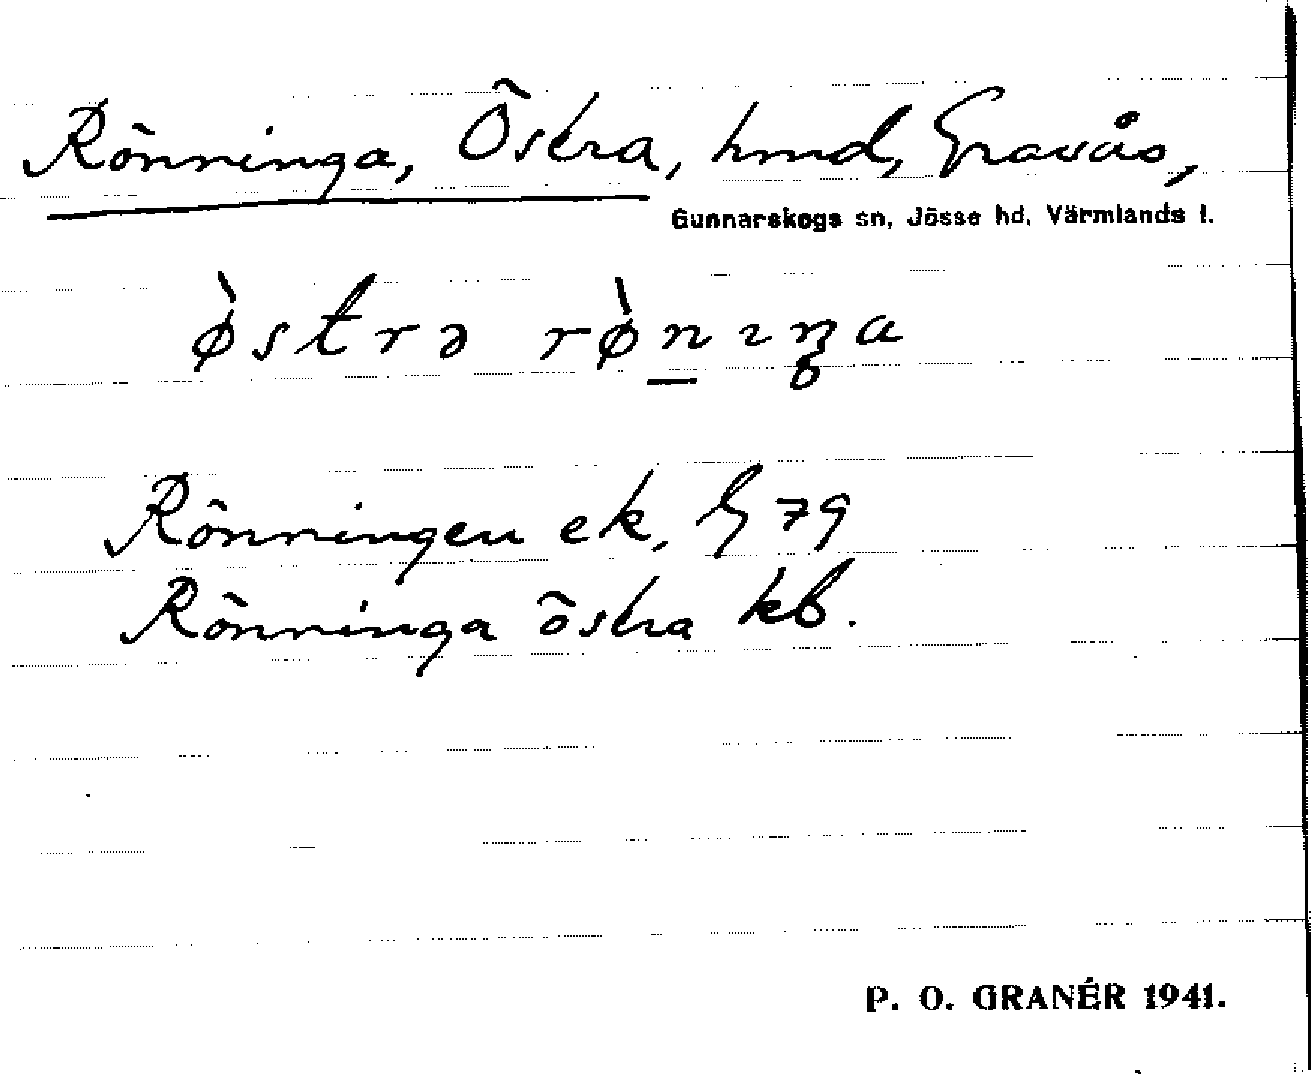 Rönninga, Östra, hmd, Gravås,
Gunnarskogs sn, Jösse hd, Värmlands l.
ø̀strə rø̀n̲ıŋa
Rönningen ek, G 79
Rönninga östra kb.
P. O. GRANÉR 1941.